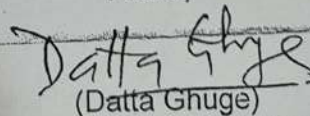 Datta Ghuge
(Datta Ghuge)